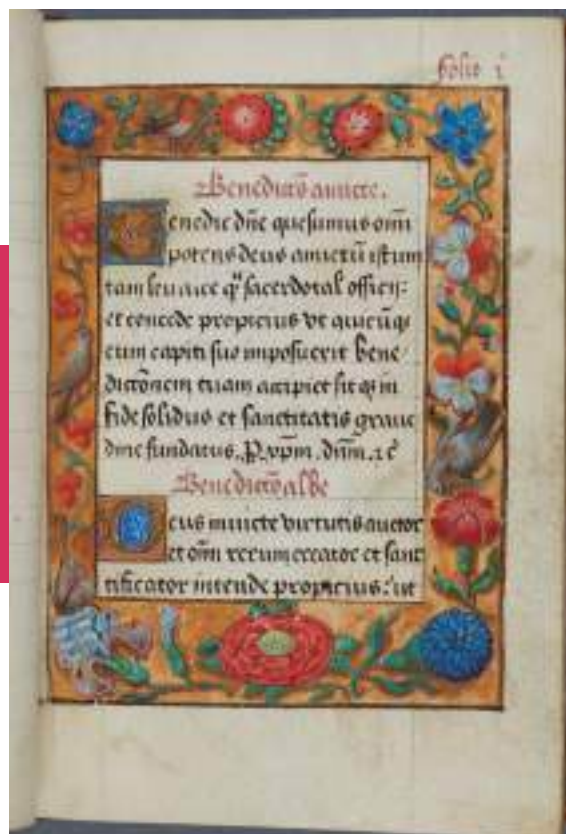 folio i
Benedictō amicte.
Benedic dn̄e quesumus om̄i
potens deus amictū istum
tam leuitice qͫ sacerdotal officij:
et concede propicius vt quicūqꝫ
eum capiti suo imposuerit bene/
dictōnem tuam accipiet sit qꝫ in
fide solidus et sanctitatis graue
dine fundatus. P. xp̄m. dn̄m. ⁊ c̄
Benedictō albe
Deus inuicte virtutis auctor
et om̄i rerum creator et sanc
tificator intende propicius: ut